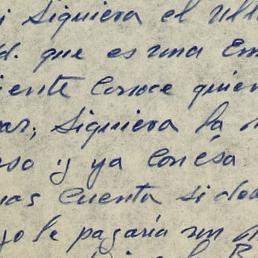 siquiera el ult
d. que es una Em
iente conoce quien
ar, siquiera la
so y ya con esa
as cuenta si de
yo le pagaria un